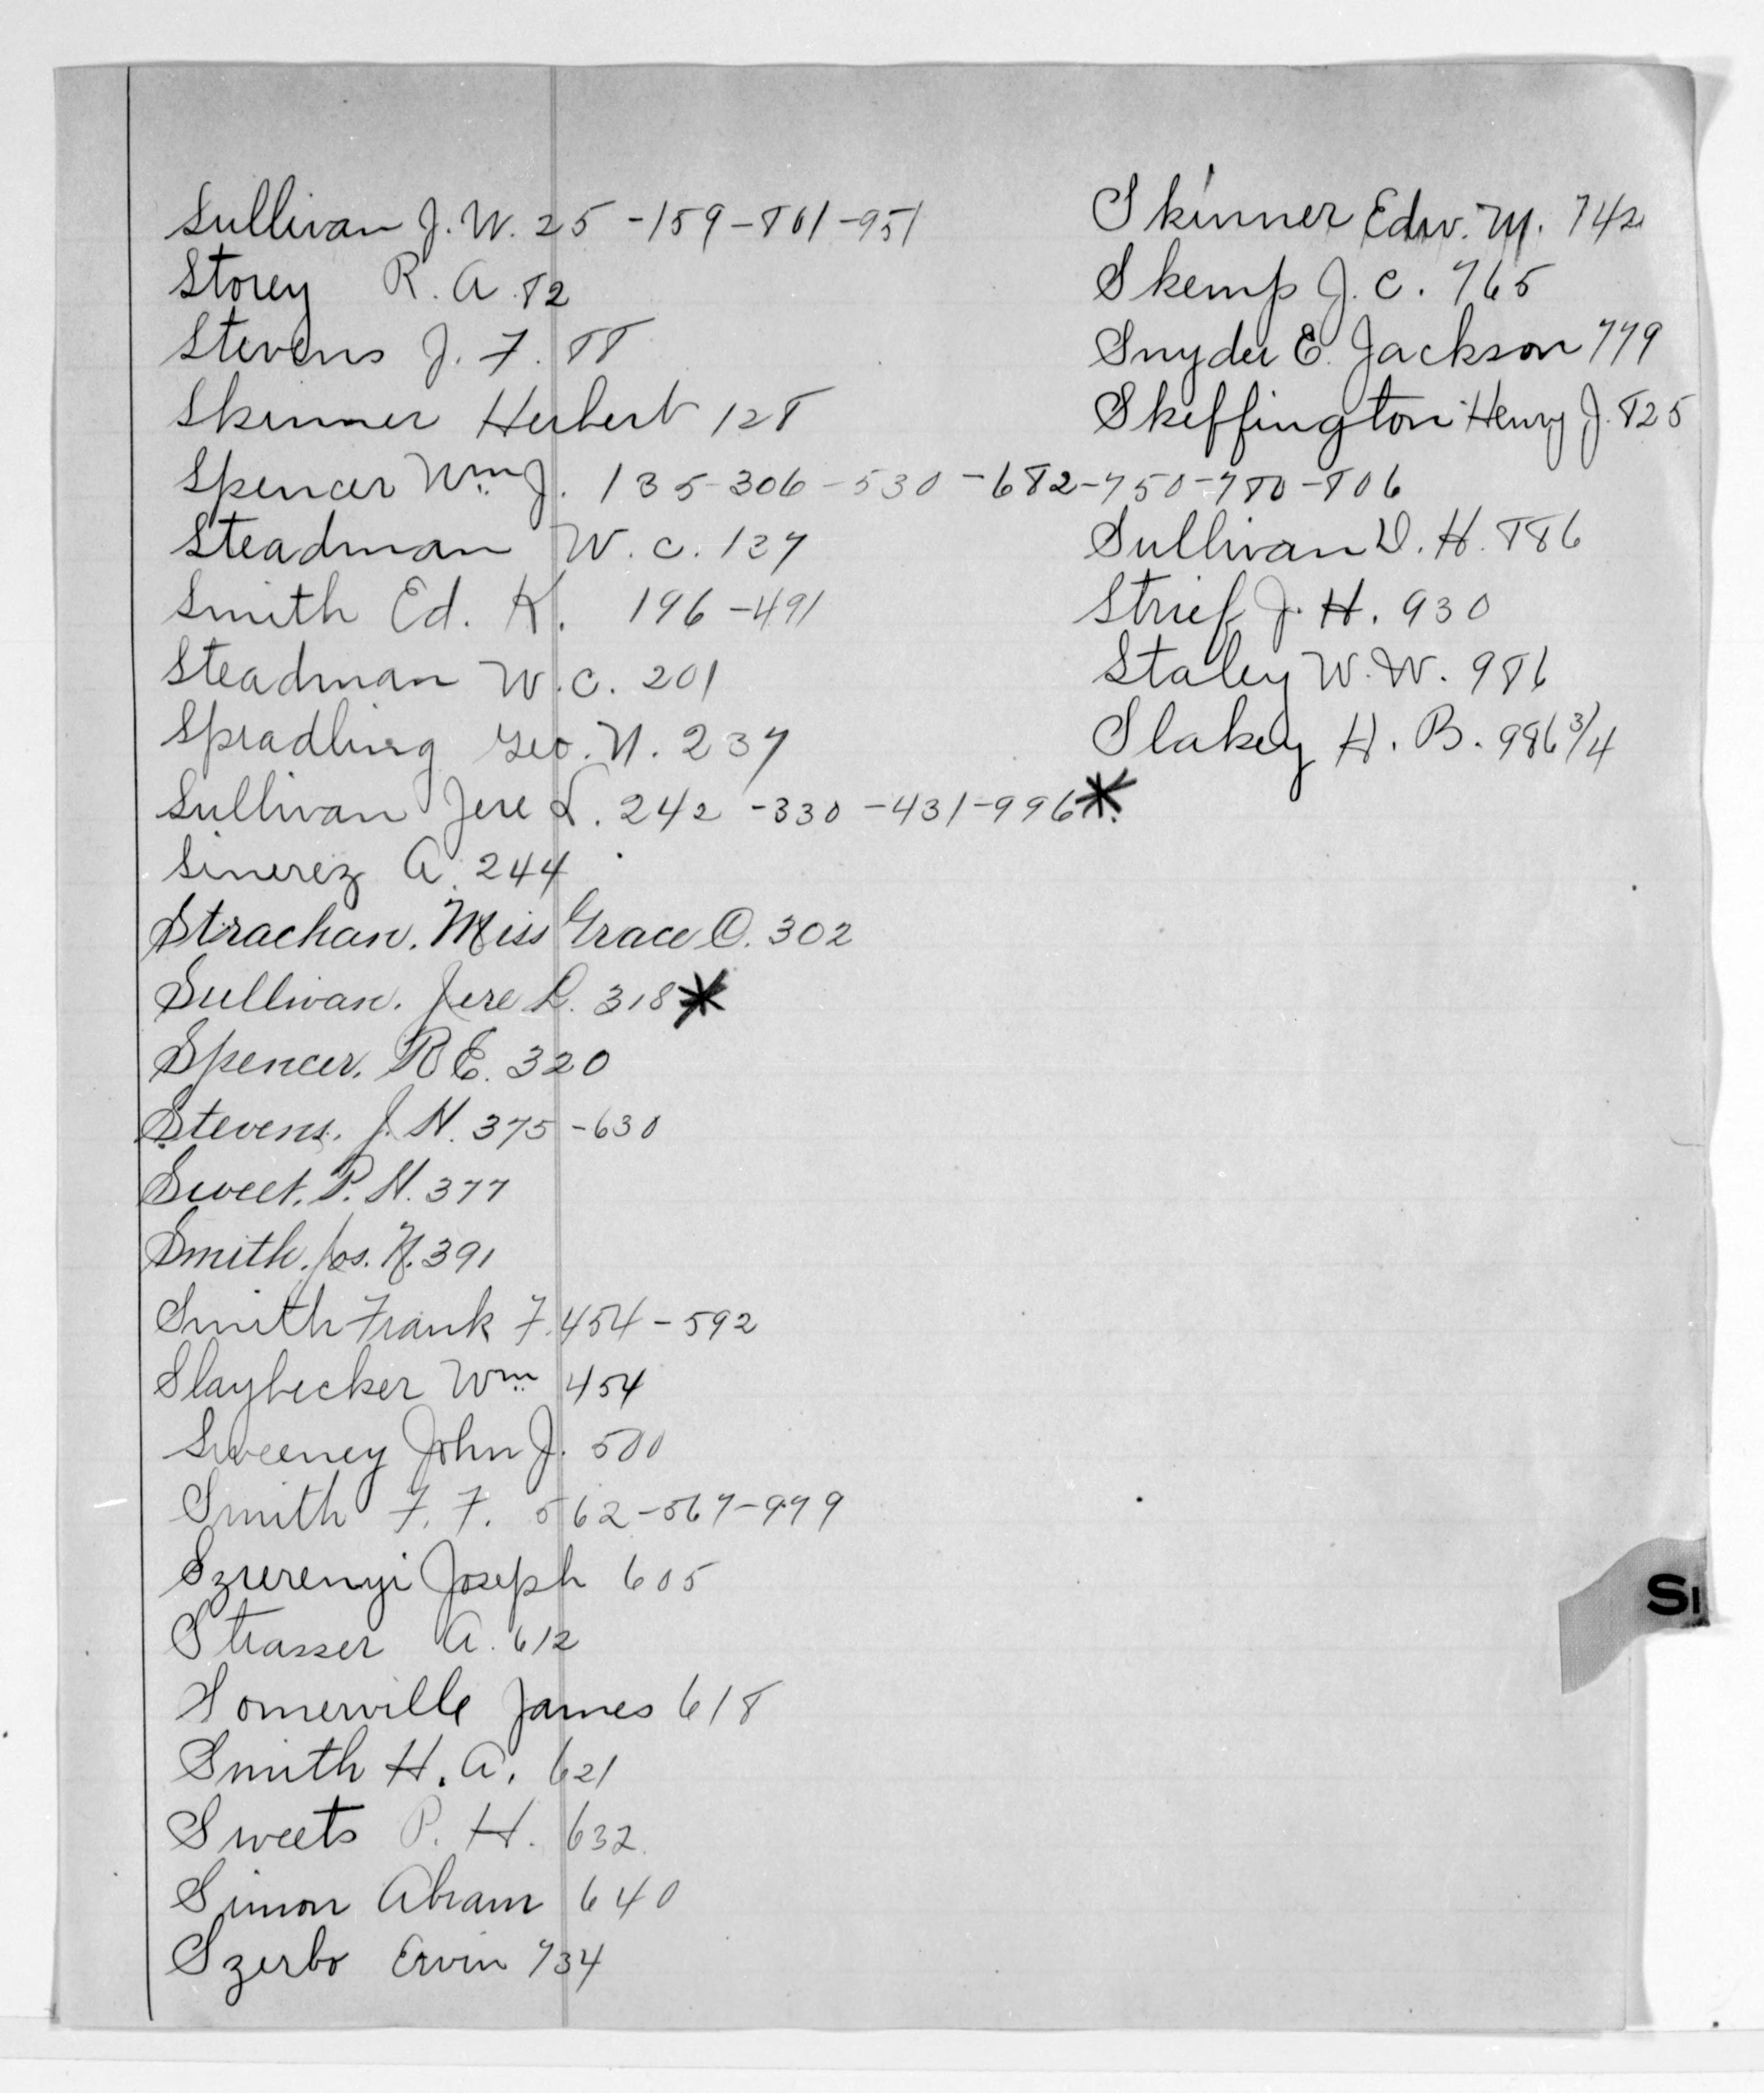 Sullivan J. W. 25 - 159 - 801 - 951
Storey R. A. 82
Stevens J. F. 88
Skinner Herbert 128
Spencer Wm J. 135 - 306 - 530 - 682 - 750 - 780 - 806
Steadman W. C. 137
Smith Ed. K. 196 - 491
Steadman W. C. 201
Spradling Geo. N. 237
Sullivan Jere L. 242 - 330 - 431 - 996 *
Sinerez A. 244
Strachan. Miss Grace C. 302
Sullivan. Jere L. 318 *
Spencer. R E. 320
Stevens. J. H. 375 - 630
Sweet. P. H. 377
Smith. Jos. N. 391
Smith Frank F. 454 - 592
Slaybecker Wm 454
Sweeney John J. 500
Smith F. F. 562 - 567 - 979
Szurenyi Joseph 605
Strasser A. 612
Somerville James 618
Smith H. A. 621
Sweets P. H. 632
Simon Abram 640
Szerbo Ervin 734
Skinner Edw. M. 742
Skemp J. C. 765
Snyder E. Jackson 779
Skeffington Henry J. 825
Sullivan D. H. 886
Strief J. H. 930
Staley W. W. 986
Slakey H. B. 986 3/4
S